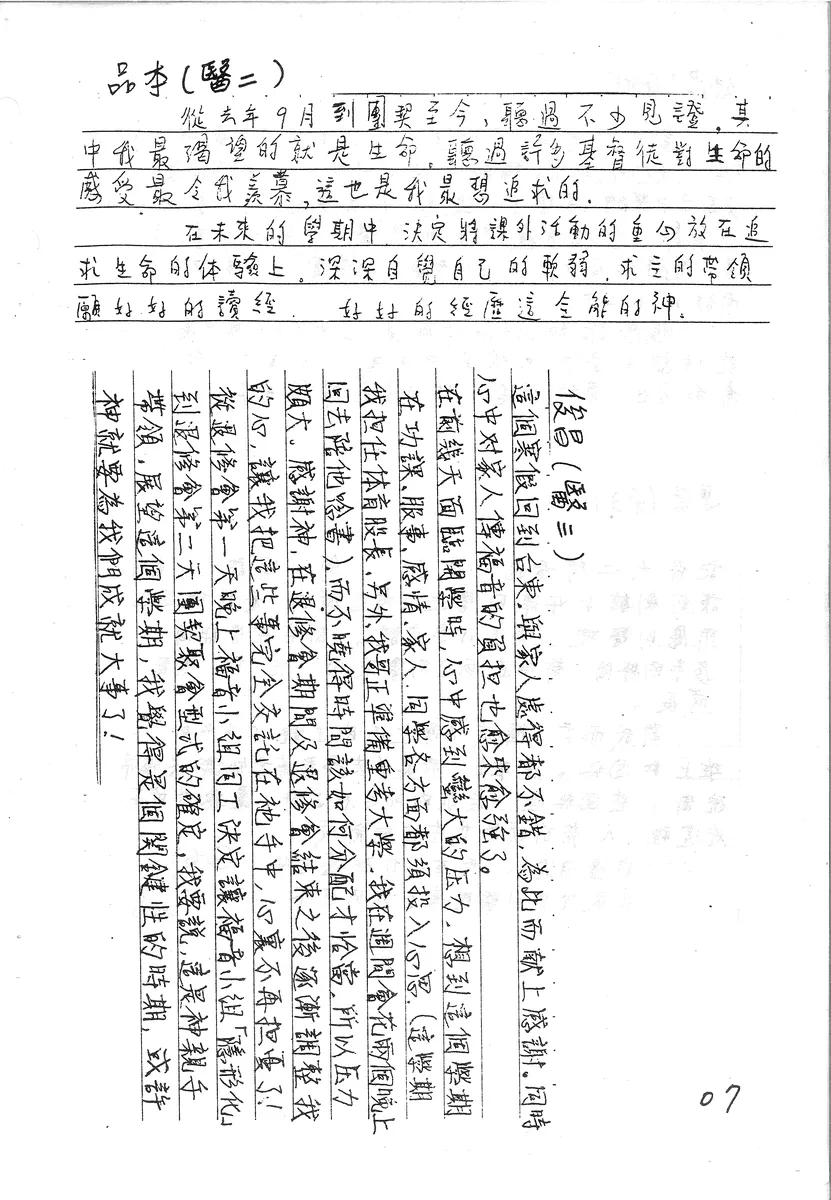 品本(醫二)
從去年9月到團契至今、聽過不少見證,其
中我最渴望的就是生命,聽過許多基督徒對生命的
感受最令我羨慕,這也是我最想追求的.
在未來的學期中 決定將課外活動的重心放在追
求生命的体驗上。深深自覺自己的軟弱.求主的帶領
願好好的讀經. 好好的經歷這全能的神。
俊昌(醫三)
這個寒假回到台東.與家人處得都不錯,為此而献上感謝。同時
心中对家人傳福音的負担也愈來愈強了。
在前幾天面臨開學時,心中感到蠻大的压力.想到這個學期
在功課.服事.感情.家人.同學各方面都須投入心思.(這學期
我担任体育股長.另外.我哥正準備重考大學.我在週間會花兩個晚上
回去陪他唸書).而不曉得時間該如何分配才恰當.所以压力
頗大。感謝神,在退修會期間及退修會結束之後逐漸調整我
的心,讓我把這些事完全交託在祂手中,心裏不再担憂了!
從退修會第一天晚上福音小組同工決定讓福音小組「隱形化」
到退修會第二天團契聚會型式的確定,我要說,這是神親手
帶領,展望這個學期,我覺得是個関鍵性的時期,或許
神就要為我們成就大事了!
07